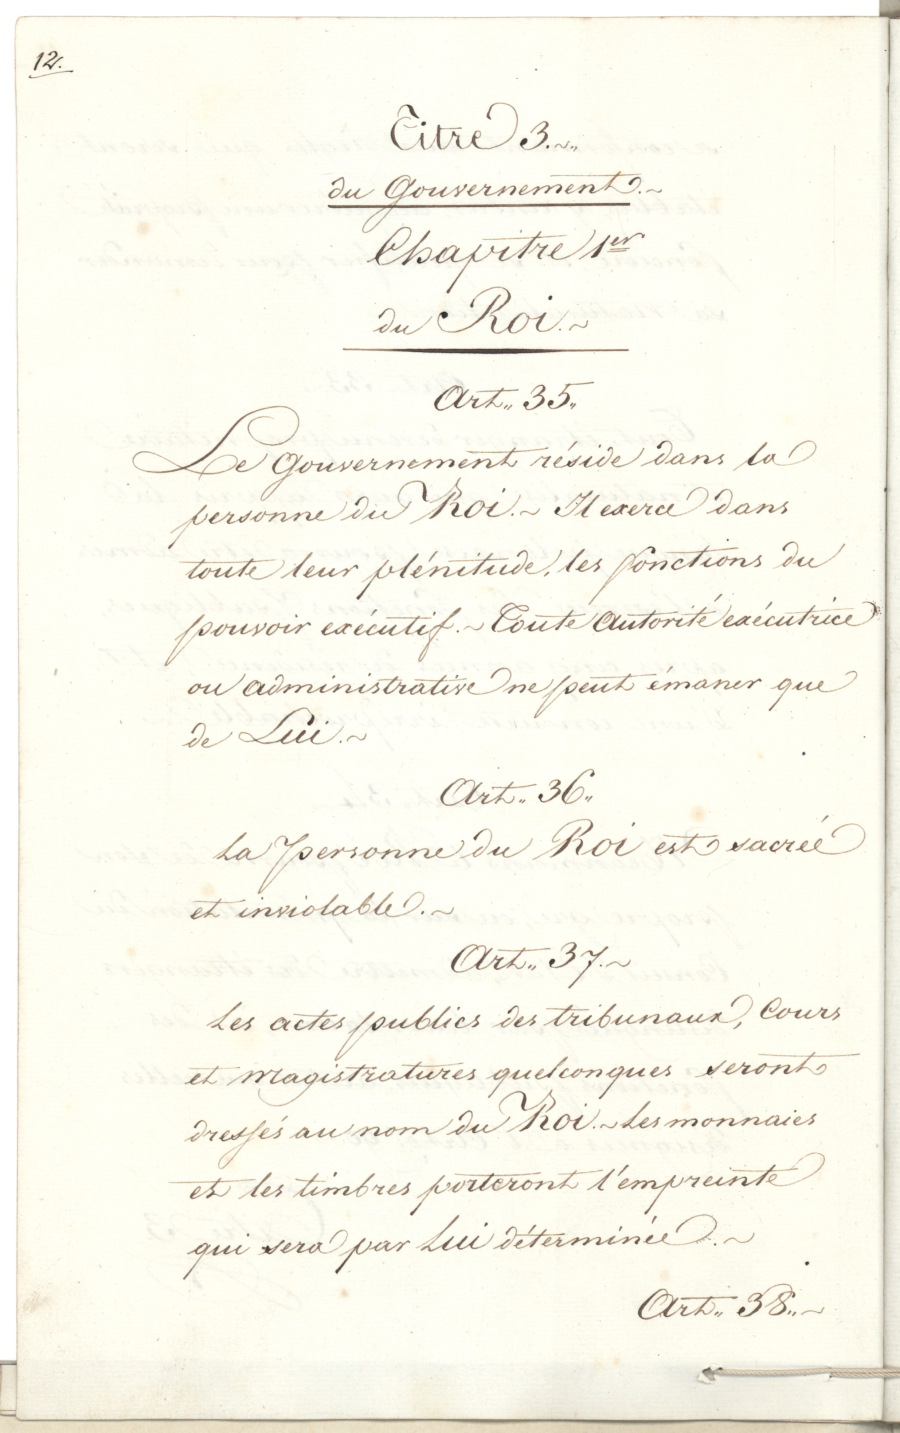 12.
Titre 3.
du Gouvernement.
Chapitre 1er
du Roi.
Art. 35.
Le Gouvernement réside dans la
personne du Roi. Il exerce dans
toute leur plénitude, les fonctions du
pouvoir exécutif. Toute autorité exécutrice
ou administrative ne peut émaner que
de Lui.
Art. 36.
La personne du Roi est sacrée
et inviolable.
Art. 37.
Les actes publics des tribunaux, Cours
et Magistratures quelconques seront
dressés au nom du Roi. Les monnaies
et les timbres porteront l'empreinte
qui sera par Lui déterminée.
Art. 38.